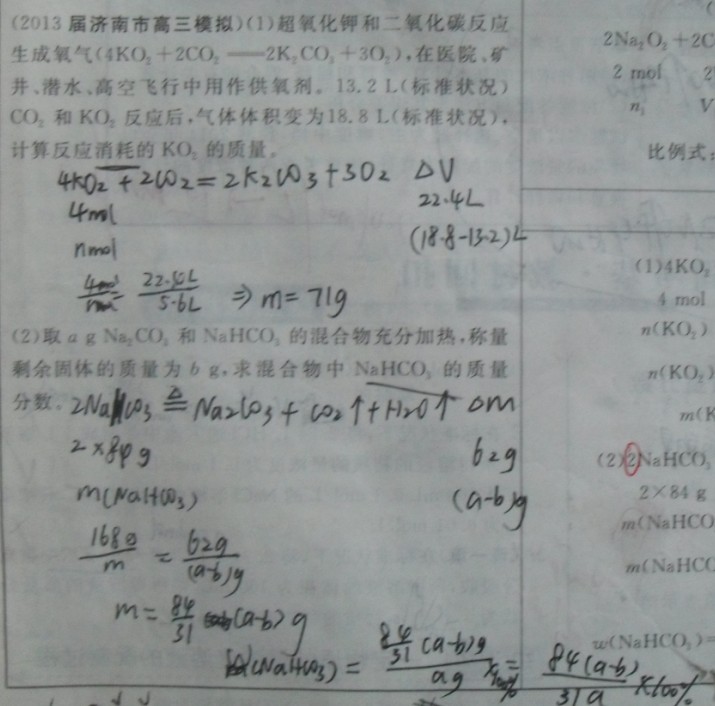 (2013届济南市高三模拟)(1)超氧化钾和二氧化碳反应
生成氧气(4KO₂+2CO₂——2K₂CO₃+3O₂),在医院、矿
井、潜水、高空飞行中用作供氧剂。13.2 L(标准状况)
CO₂ 和 KO₂ 反应后,气体体积变为18.8 L(标准状况),
计算反应消耗的 KO₂ 的质量。
4KO₂+2CO₂=2K₂CO₃+3O₂ ΔV
4mol 22.4L
nmol (18.8-13.2)L
22.4L/5.6L ⇒ m=71g
(2)取 a g Na₂CO₃ 和 NaHCO₃ 的混合物充分加热,称量
剩余固体的质量为 b g,求混合物中 NaHCO₃ 的质量
分数。
2NaHCO₃ ≜ Na₂CO₃+CO₂↑+H₂O↑ Δm
2×84g 62g
m(NaHCO₃) (a-b)g
168g/m = 62g/(a-b)g
m=84/31 (a-b) g
(NaHCO₃) = 84/31(a-b)g/ag ×100% = 84(a-b)/31a ×100%
2Na₂O₂+2C
2 mol 2
n₁ V
比例式:
(1)4KO₂
4 mol
n(KO₂)
n(KO₂)
m(K
(2)2NaHCO₃
2×84 g
m(NaHCO
m(NaHCO
w(NaHCO₃)=